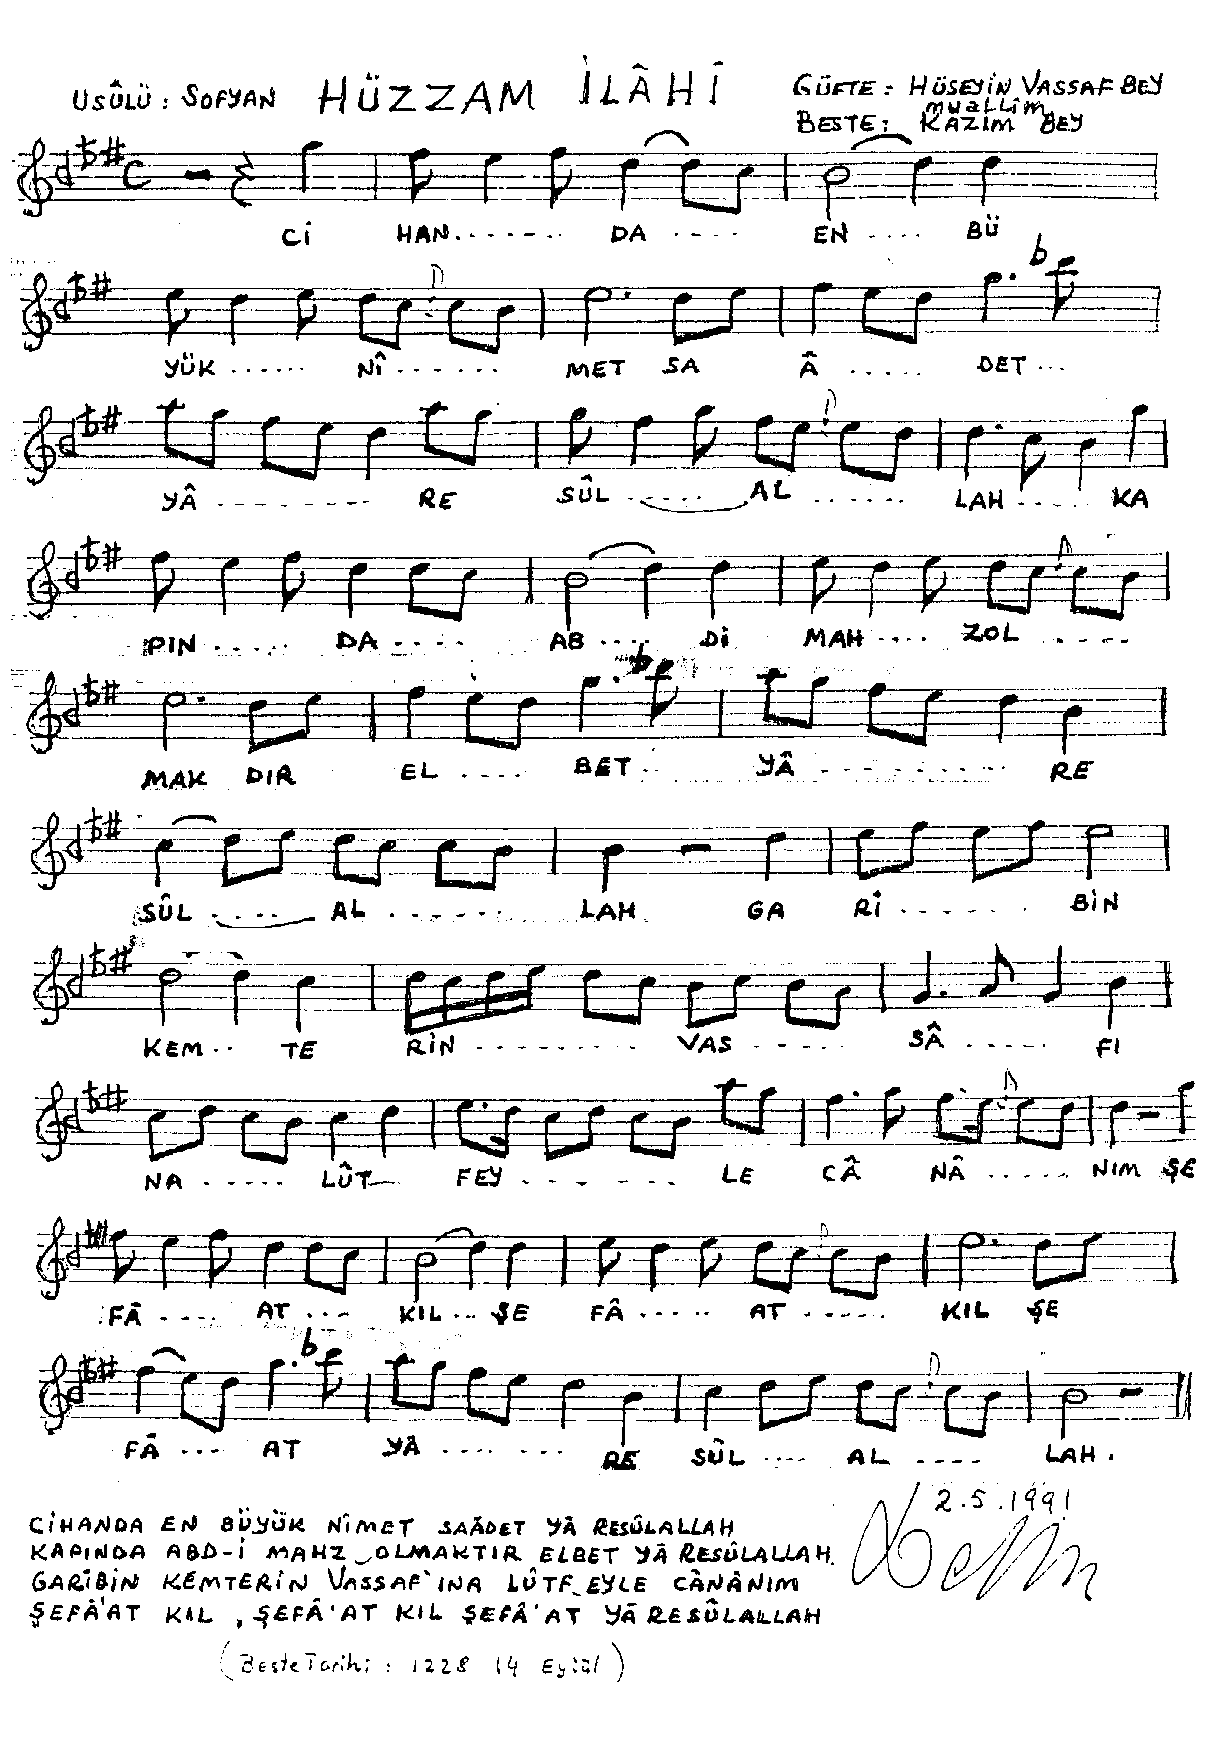 USÛLÜ : SOFYAN HÜZZAM İLÂHİ GÜFTE : HÜSEYİN VASSAF BEY
BESTE : MUALLİM KAZIM BEY
Cİ HAN....... DA .... EN .... BÜ
YÜK ...... NÎ ....... MET SA Â ..... DET ...
YÂ ......... RE SÛL ..... AL ...... LAH ..... KA
PIN ..... DA .... AB .... Dİ MAH .... ZOL .....
MAK DIR EL .... BET .. YÂ ......... RE
SÛL .... AL ....... LAH GA RÎ ....... BİN
KEM .. TE RİN ......... VAS ..... SÂ ..... FI
NA ..... LÛT FEY ........ LE CÂ NÂ ..... NIM ŞE
FÂ .... AT ... KIL ... ŞE FÂ ..... AT ...... KIL ŞE
FÂ ... AT YÂ ....... RE SÛL .... AL .... LAH .
2.5.1991
CİHANDA EN BÜYÜK NÎMET SAÂDET YÂ RESÛLALLAH
KAPINDA ABD-İ MAHZ OLMAKTIR ELBET YÂ RESÛLALLAH.
GARÎBİN KEMTERİN VASSAF'INA LÛTF EYLE CÂNÂNIM
ŞEFÂ'AT KIL , ŞEFÂ'AT KIL ŞEFÂ'AT YÂ RESÛLALLAH
(Beste Tarihi : 1228 14 Eylül)